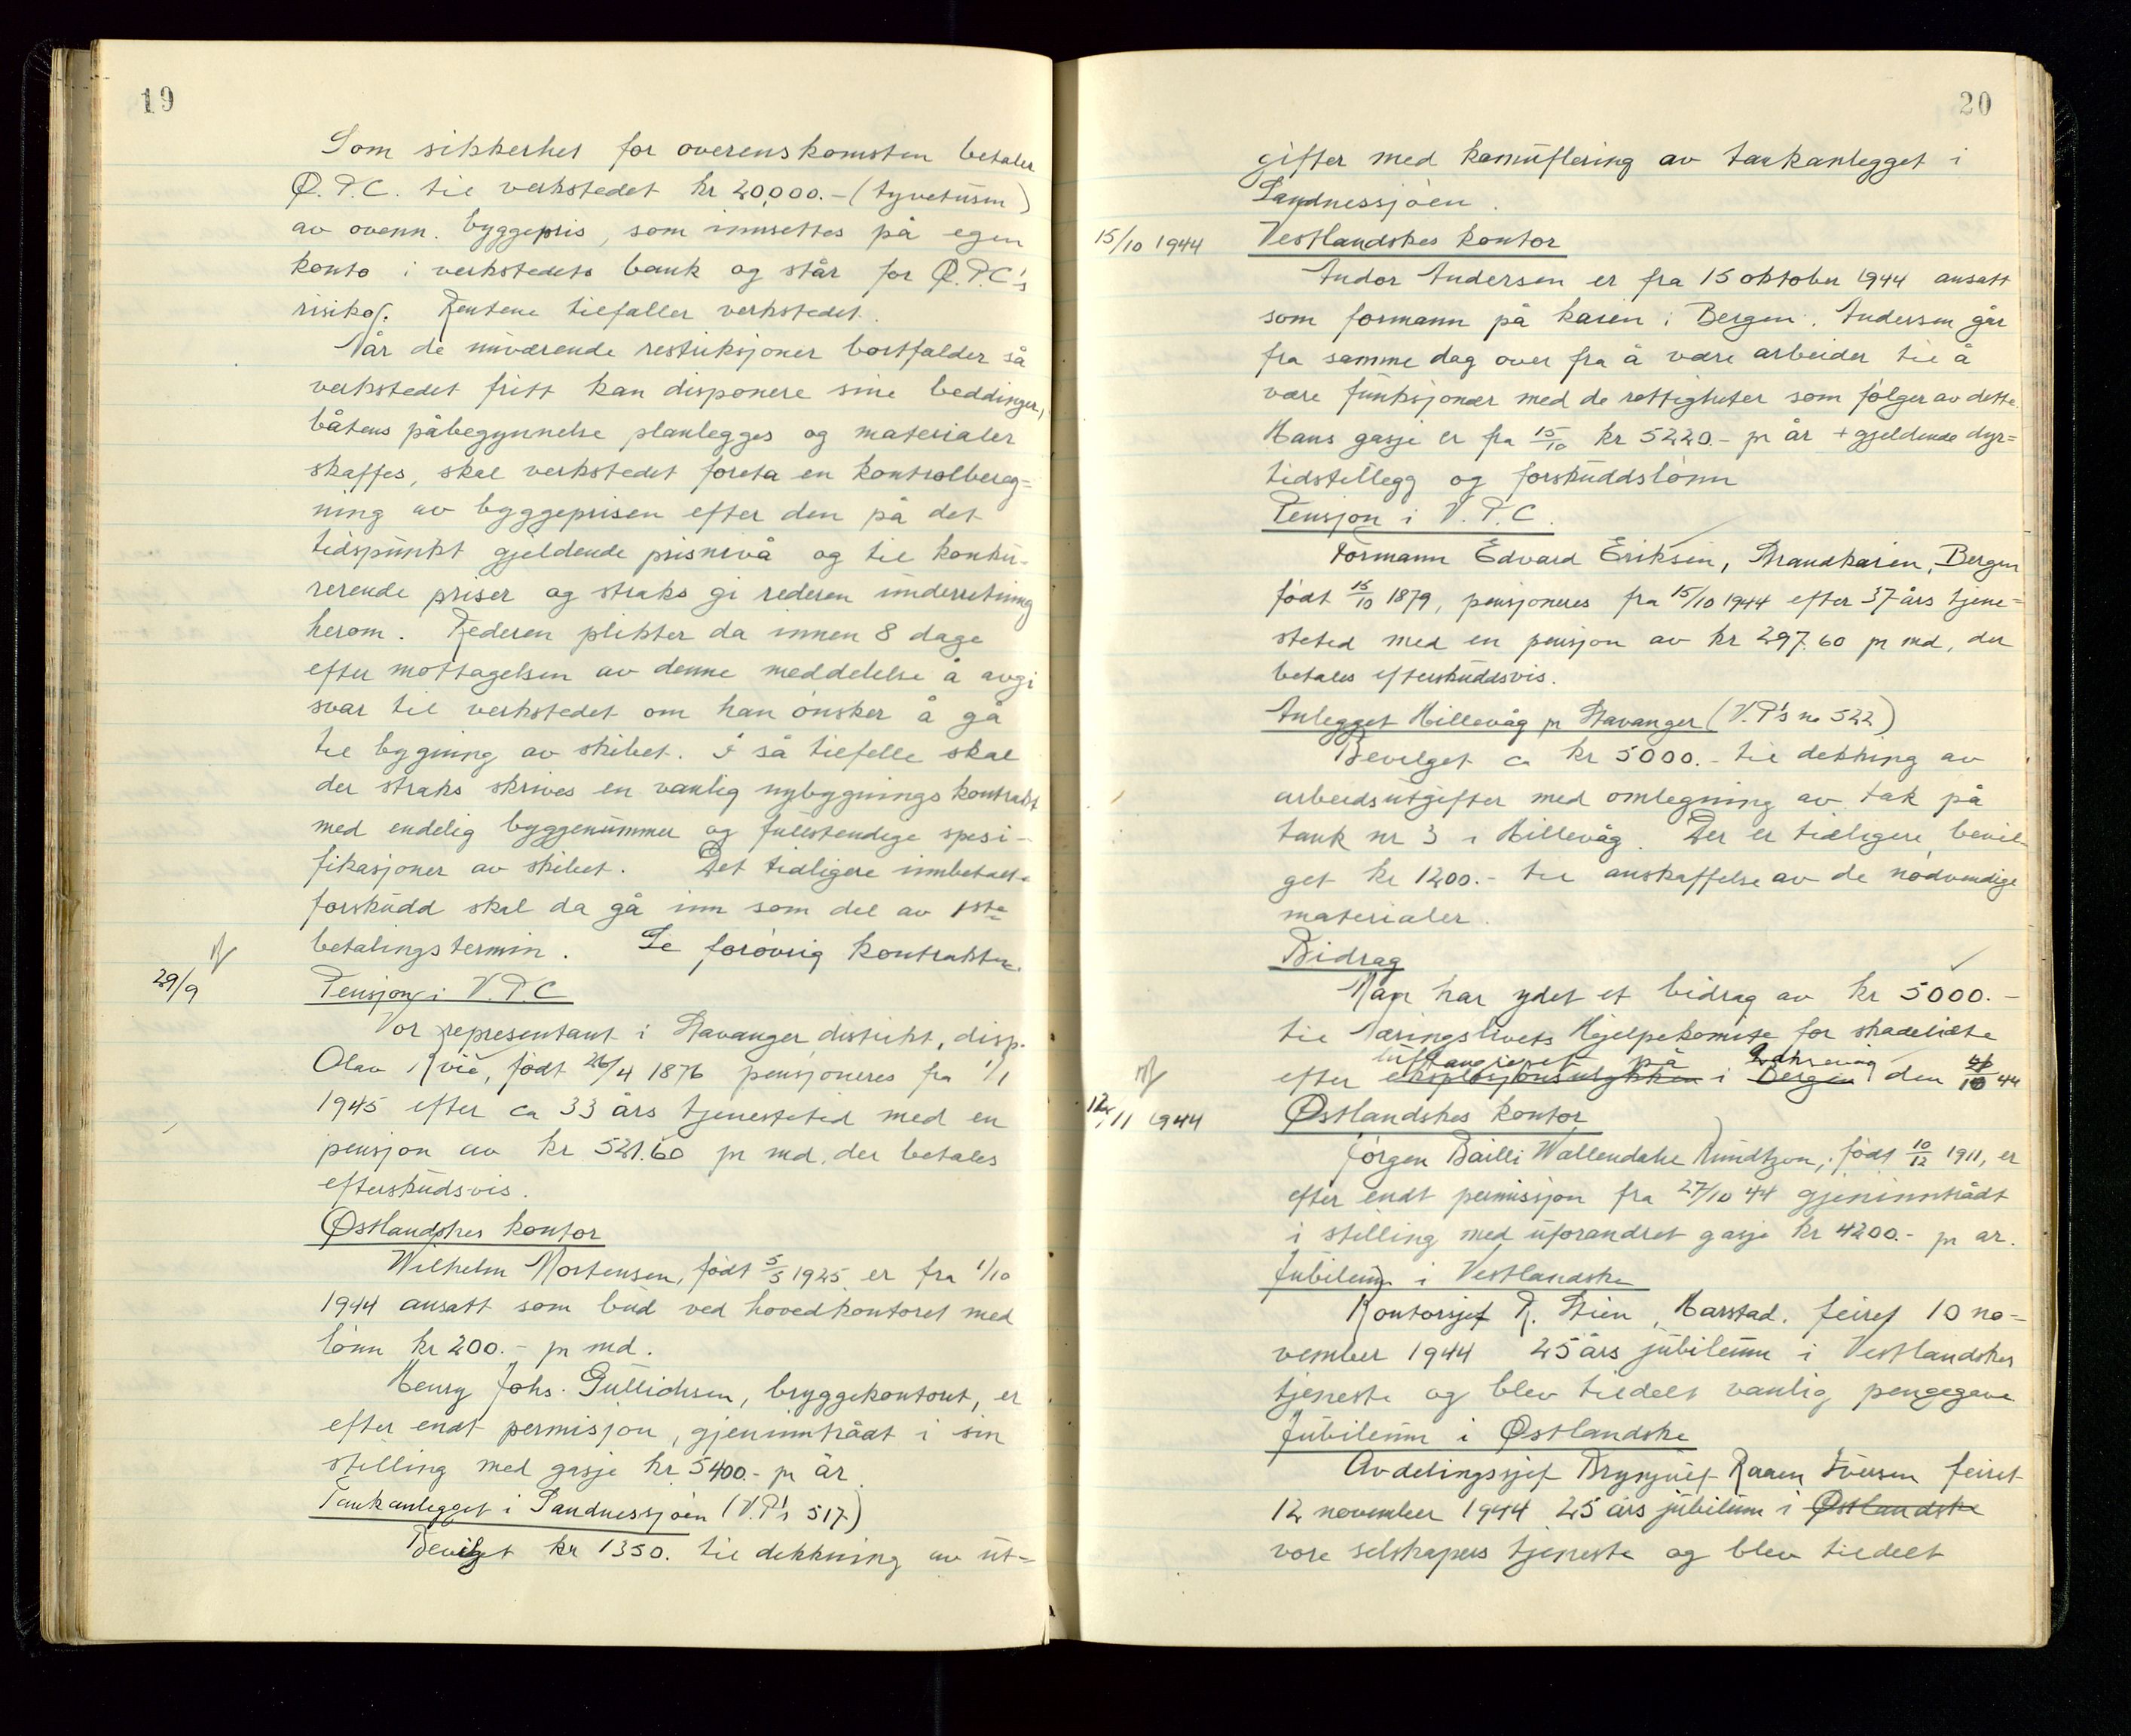 19
Som sikkerhet for overenskomsten betaler
Ø.P.C. til verkstedet kr 20,000.- (tyvetusen)
av ovenn. byggepris, som innsettes på egen
konto i verkstedets bank og står for Ø.P.C's
risiko. Rentene tilfaller verkstedet.
Når de nuværende restriksjoner bortfalder så
verkstedet fritt kan disponere sine beddinger,
båtens påbegynnelse planlegges og materialer
skaffes, skal verkstedet foreta en kontrolbereg=
ning av byggeprisen efter den på det
tidspunkt gjeldende prisnivå og til konkur-
rerende priser og straks gi rederen underretning
herom. Rederen plikter da innen 8 dage
efter mottagelsen av denne meddelelse å avgi
svar til verkstedet om han ønsker å gå
til bygning av skibet. I så tilfelle skal
der straks skrives en vanlig nybygningskontrakt
med endelig byggenummer og fullstendige spesi-
fikasjoner av skibet. Det tidligere innbetalte
forskudd skal da gå inn som del av 1ste
betalingstermin. Se forøvrig kontrakten.
29/9
Pensjon i V.P.C
Vor representant i Stavanger distrikt, disp.
Olav Kvie, født 26/4 1876 pensjoneres fra 1/1
1945 efter ca 33 års tjenestetid med en
pensjon av kr 521.60 pr md. der betales
efterskudsvis.
Østlandskes kontor
Wilhelm Mortensen, født 5/5 1925 er fra 1/10
1944 ansatt som bud ved hovedkontoret med
lønn kr 200.- pr md.
Henry Johs. Gullichsen, bryggekontoret, er
efter endt permisjon, gjeninntrådt i sin
stilling med gasje kr 5400.- pr år.
Tankanlegget i Sandnessjøen (V.P's 517)
Bevilget kr 1350. til dekkning av ut=
20
gifter med kamuflering av tankanlegget i
Sandnessjøen.
15/10 1944
Vestlandskes kontor
Andor Andersen er fra 15 oktober 1944 ansatt
som formann på kaien i Bergen. Andersen går
fra samme dag over fra å være arbeider til å
være funksjonær med de rettigheter som følger av dette.
Hans gasje er fra 15/10 kr 5220.- pr år + gjeldende dyr=
tidstillegg og forskuddslønn
Pensjon i V.P.C.
Formann Edvard Eriksen, Strandkaien, Bergen
født 15/10 1879, pensjoneres fra 15/10 1944 efter 37 års tjene=
stetid med en pensjon av kr 297.60 pr md, der
betales efterskuddsvis.
Anlegget Hillevåg pr Stavanger (V.P's no 522)
Bevilget ca kr 5000.- til dekkning av
arbeidsutgifter med omlegning av tak på
tank nr 3 i Hillevåg. Der er tidligere bevil-
get kr 1200.- til anskaffelse av de nødvendige
materialer.
Bidrag
Man har ydet et bidrag av kr 5000.-
til Næringslivets Hjelpekomite for skadelidte
luftangrepet på Laksevåg
efter eksplosjonsulykken i Bergen den 10 44
12/11 1944
Østlandskes kontor
Jørgen Bailli Wallendahl Knudtzon, født 10/12 1911, er
efter endt permisjon fra 27/10 44 gjeninntrådt
i stilling med uforandret gasje kr 4200.- pr år.
Jubileum i Vestlandske
Kontorsjef R. Stien, Harstad, feiret 10 no=
vember 1944 25 års jubileum i Vestlandskes
tjeneste og blev tildelt vanlig pengegave
Jubileum i Østlandske
Avdelingssjef Brynjulf Iversen feiret
12 november 1944 25 års jubileum i Østlandske
vore selskapers tjeneste og blev tildelt